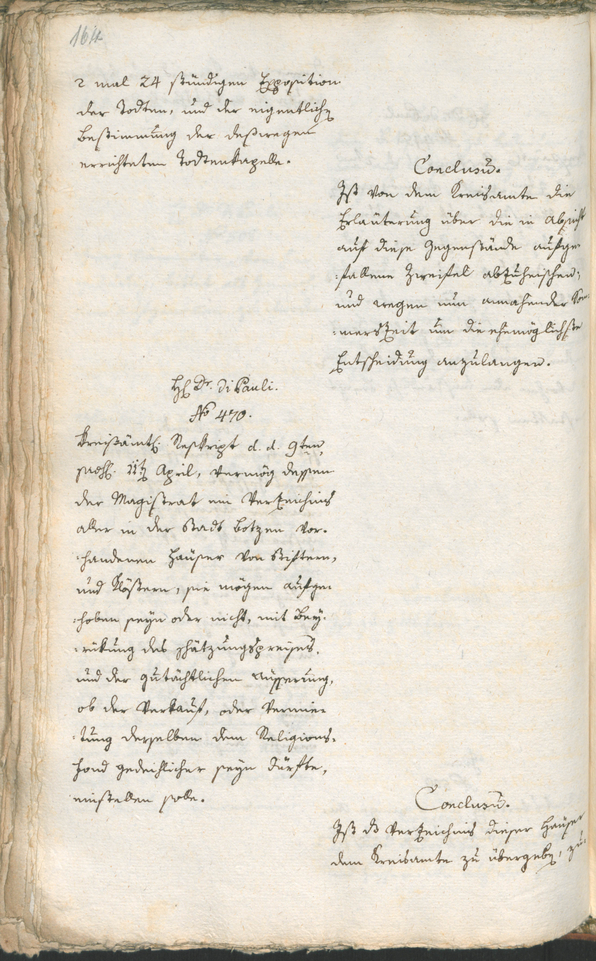 164
2 mal 24 stündigen Exposition
der Todten, und der eigentlichen
Bestimmung der deßwegen
errichteten Todtenkapelle.
Conclusum.
Ist von dem Kreisamte die
Erläuterung über die in Absicht
auf diese Gegenstände aufge-
fallene Zweifel abzuheischen,
und wegen nun annahender Som-
merszeit um die ehemöglichste
Entscheidung anzulangen.
H. Dr. Di Pauli.
No 470.
Kreisämtl. Reskript d. d. 9ten
 11ten April, vermög dessen
der Magistrat ein Verzeichnis
aller in der Stadt Botzen vor-
handenen Häuser von Stiftern,
und Klöstern, sie mögen aufge-
hoben seyn oder nicht, mit Bey-
rükung des Schätzungspreises,
und der gutächtlichen Äusserung,
ob der Verkauf, oder Vermie-
tung derselben dem Religions-
fond gedeihlicher seyn dürfte,
einstellen solle.
Conclusum.
Ist das Verzeichnis dieser Häuser
dem Kreisamte zu übergeben, zu-